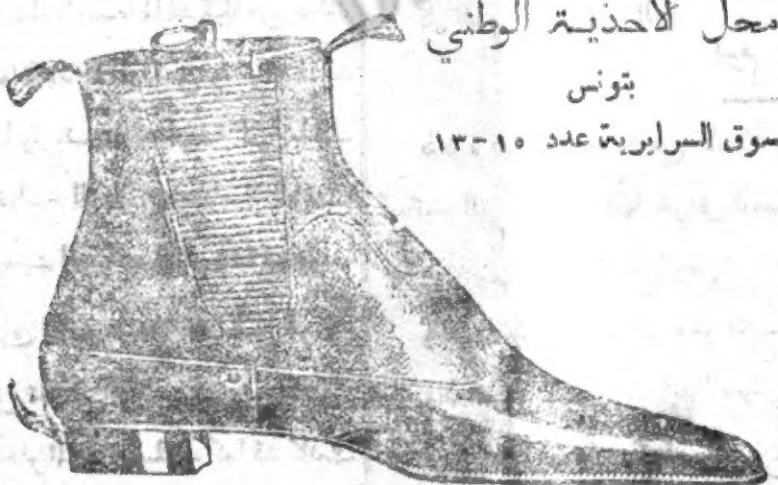 محل الاحذيـة الوطني
بتونس
سوق السرايرية عدد ١٥-١٣